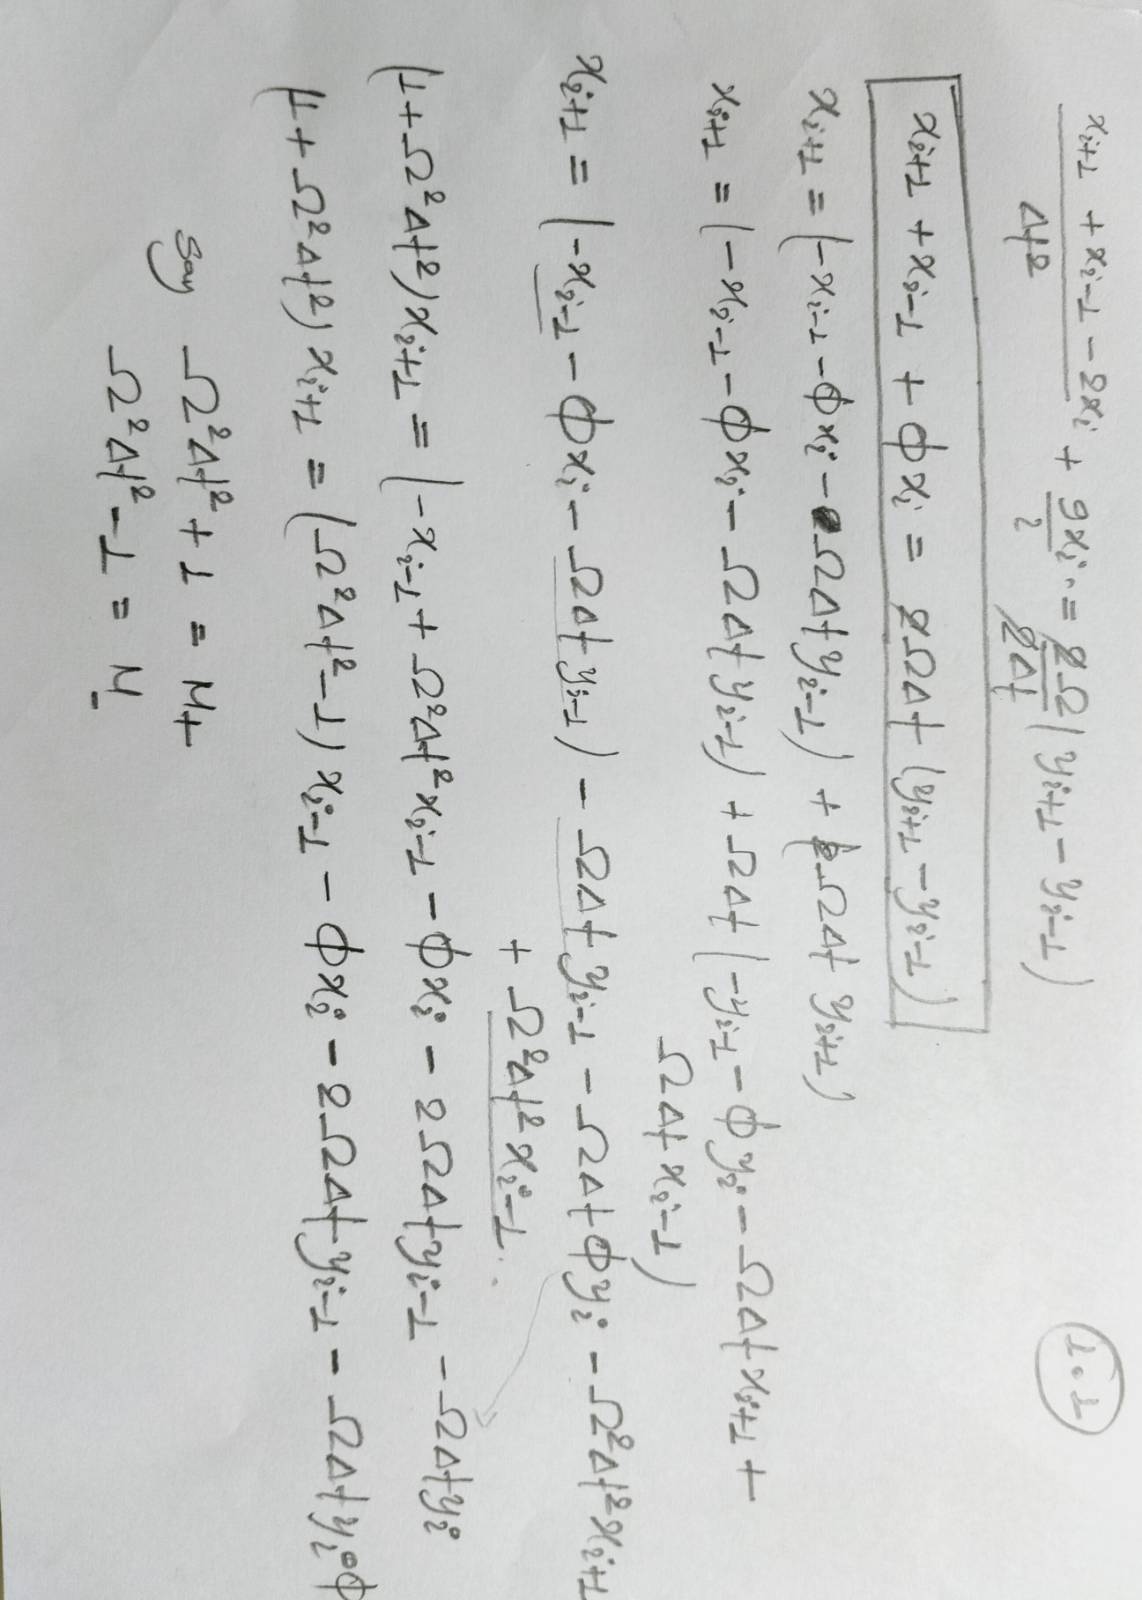 1.1
(x_{i+1} + x_{i-1} - 2x_i)/Δt² + gx_i/l = 2Ω/2Δt (y_{i+1} - y_{i-1})
x_{i+1} + x_{i-1} + ϕx_i = ΩΔt (y_{i+1} - y_{i-1})
x_{i+1} = (-x_{i-1} - ϕx_i - ΩΔt y_{i-1}) + (ΩΔt y_{i+1})
x_{i+1} = (-x_{i-1} - ϕx_i - ΩΔt y_{i-1}) + ΩΔt (-y_{i-1} - ϕy_i - ΩΔt x_{i+1} +
ΩΔt x_{i-1})
x_{i+1} = (-x_{i-1} - ϕx_i - ΩΔt y_{i-1}) - ΩΔt y_{i-1} - ΩΔt ϕy_i - Ω²Δt² x_{i+1}
+ Ω²Δt² x_{i-1}
(1 + Ω²Δt²) x_{i+1} = (-x_{i-1} + Ω²Δt² x_{i-1} - ϕx_i - 2ΩΔt y_{i-1} - ΩΔt y_i
(1 + Ω²Δt²) x_{i+1} = (Ω²Δt² - 1) x_{i-1} - ϕx_i - 2ΩΔt y_{i-1} - ΩΔt y_i ϕ
Say Ω²Δt² + 1 = M₊
Ω²Δt² - 1 = M₋